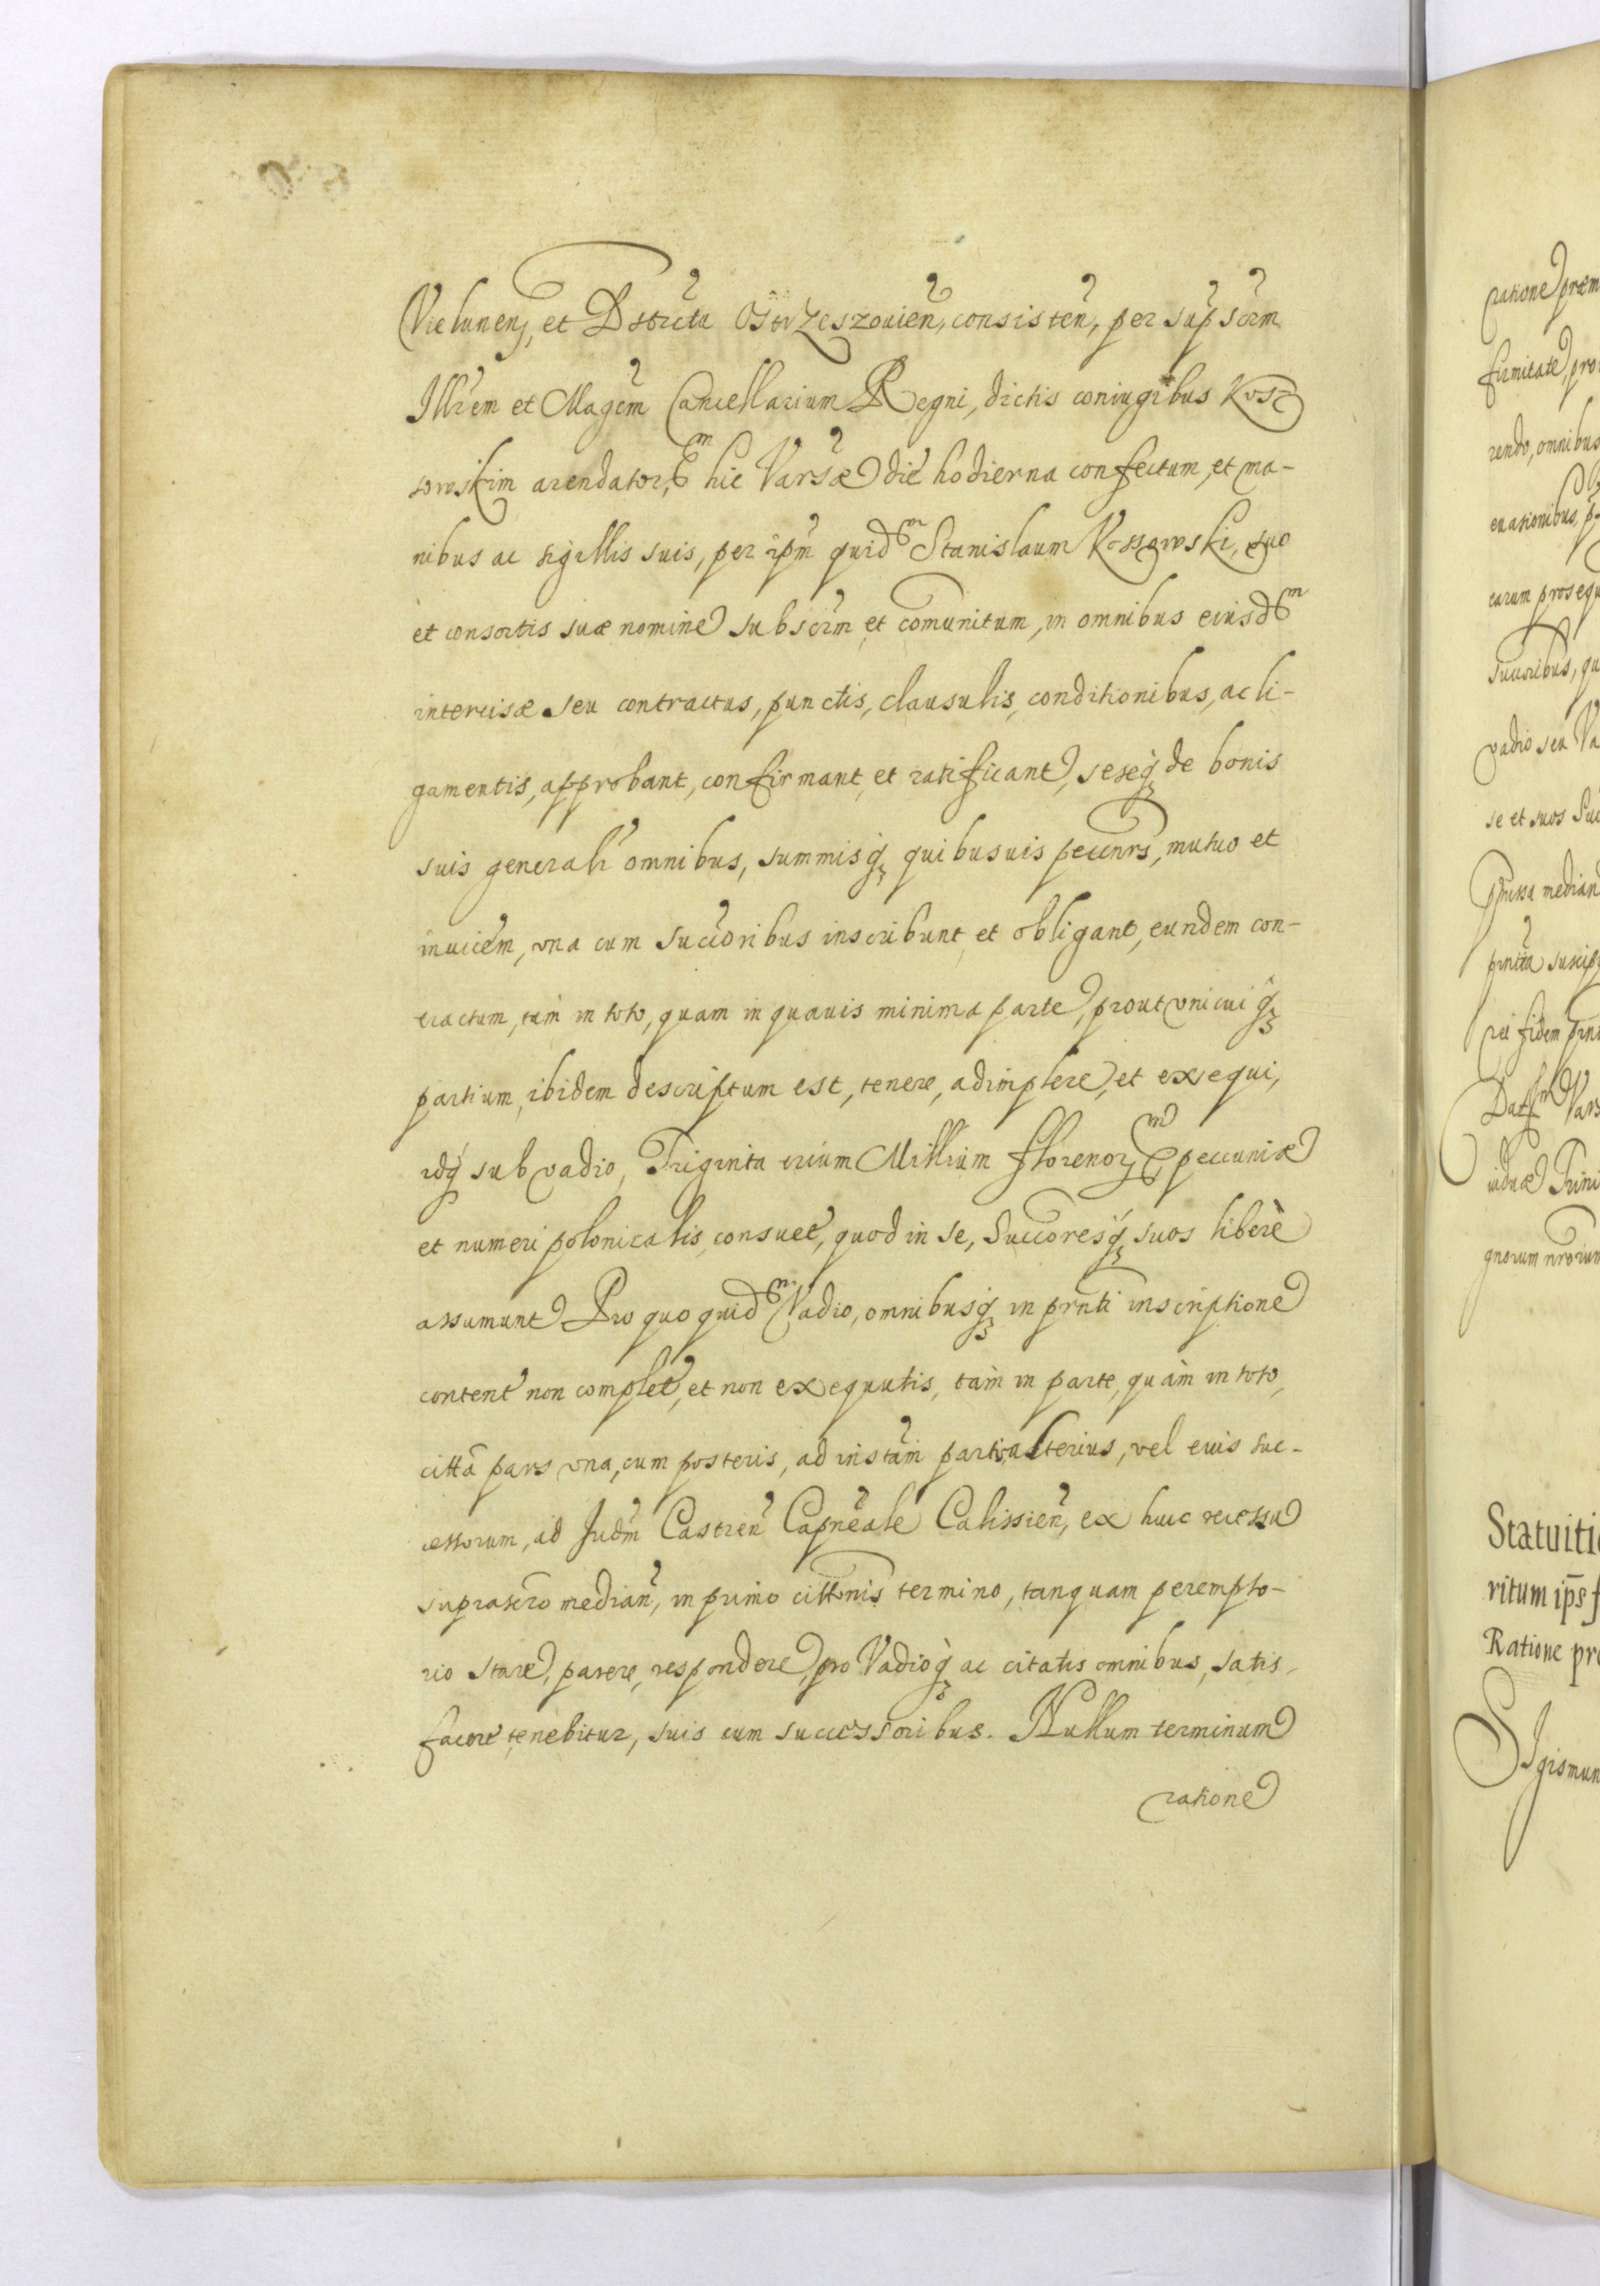 Vielunen, et Dstrictu Ostrzeszouien, consisten, per supscrm
Illrem et Magcm Cancellarium Regni, dictis coniugibus Kos-
sowskim arendatorem hic Varsae die hodierna confectum, et ma-
nibus ac sigillis suis, per ipm quidem Stanislaum Kossowski, suo
et consortis suae nomine subscrm et comunitum, in omnibus eiusdem
intercisae seu contractus, punctis, clausulis, conditionibus, ac li-
gamentis, approbant, confirmant, et ratificant, seseq de bonis
suis generalr omnibus, summisq quibusuis pecunrs, mutuo et
inuicem, una cum succoribus inscribunt et obligant, eundem con-
tractum, tam in toto, quam in quauis minima parte, prout unicuiq
partium, ibidem descriptum est, tenere, adimplere, et exequi,
idq sub vadio, Triginta trium Millium florenor pecuniae
et numeri polonicalis, consuet, quod in se, Succoresq suos liberè
assumunt Pro quo quidem Vadio, omnibusq in prnti inscriptione
content non complet, et non exequutis, tàm in parte, quàm in toto,
citta pars una, cum posteris, ad instam partis alterius, vel euis suc-
cessorum, ad Judm Castren Capneale Calissien, ex huic recessu
suprascro median, in primo cittonis termino, tanquam perempto-
rio stare, parere, respondere, pro Vadioq ac citatis omnibus, satis-
facere tenebitur, suis cum successoribus. Nullum terminum
ratione
ratione praem
firmitate, pro
rendo, omnibus
euasionibus, p
earum prosequ
succoribus, qu
vadio seu Va
se et suos Suc
median
suscip
rei fidem prnt
Vars
Trini
gnorum nrorum
Statuiti
ritum ips f
Ratione pr
Sigismun